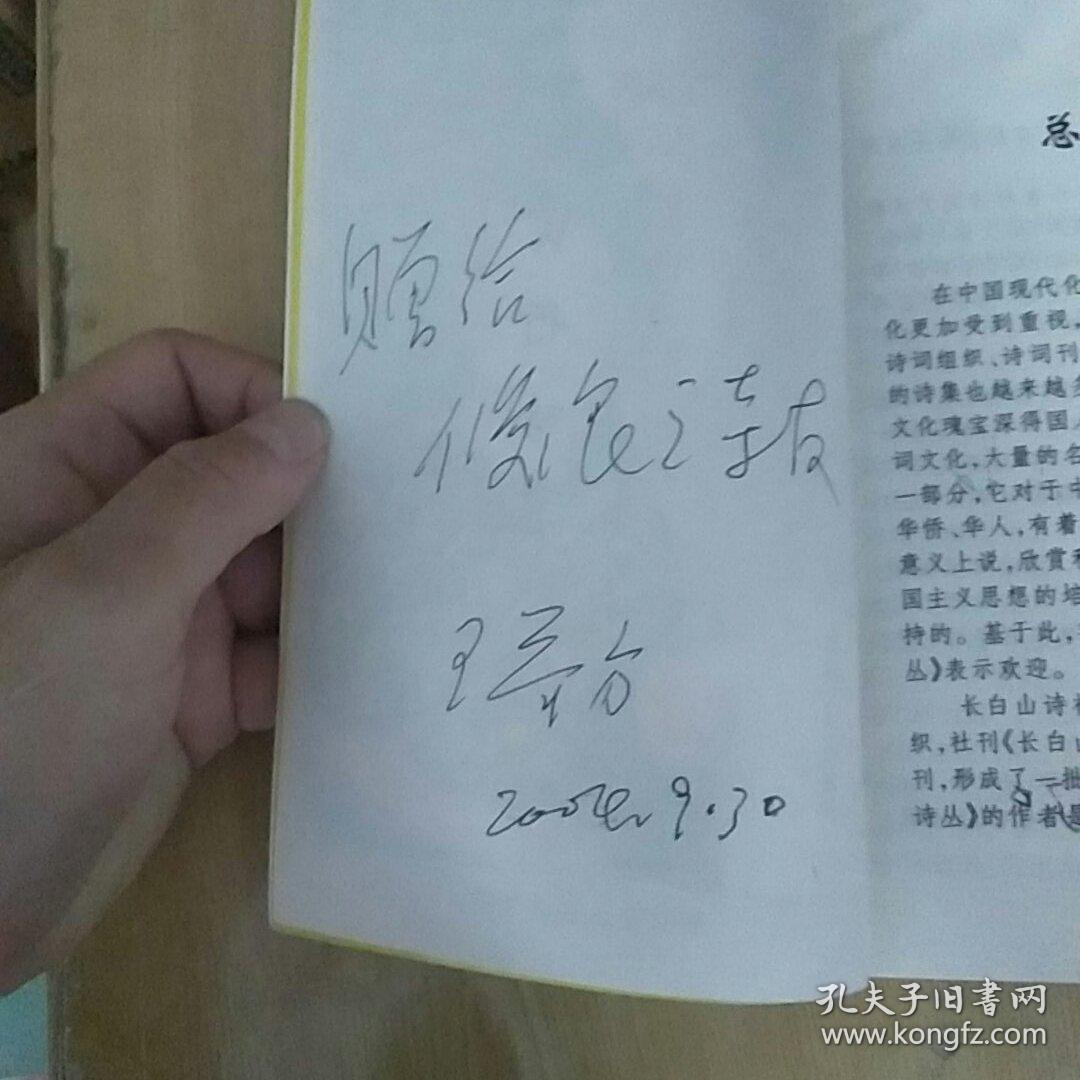 赠给
俊良诗友
王
9.30
总
在中国现代化
化更加受到重视,
诗词组织、诗词刊
的诗集也越来越多
文化瑰宝深得国人
词文化,大量的名
一部分,它对于中
华侨、华人,有着
意义上说,欣赏和
国主义思想的培
持的。基于此,
丛》表示欢迎。
长白山诗社
织,社刊《长白山
刊,形成了一批
诗丛》的作者是
孔夫子旧書网
www.kongfz.com